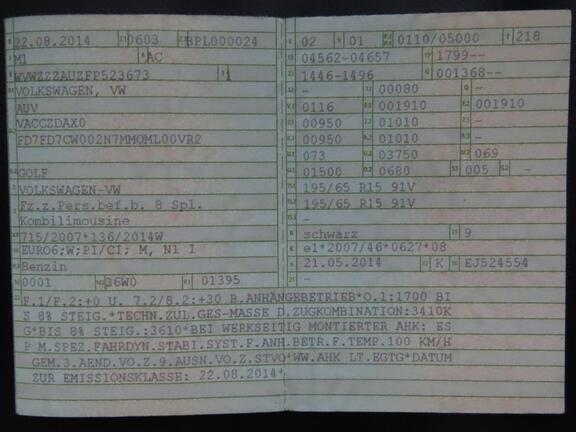 22.08.2014 0603 BPL000024
M1 AC
WVWZZZAUZFP523673
VOLKSWAGEN, VW
AUV
VACCZDAX0
FD7FD7CW002N7MMOML00VR2
GOLF
VOLKSWAGEN-VW
Fz.z.Pers.bef.b. 8 Spl.
Kombilimousine
715/2007*136/2014W
EURO6;W;PI/CI; M, N1 I
Benzin
0001 36W0 01395
02 01 0110/05000 218
04562-04657 1799--
1446-1496 001368--
- 00080 -
0116 001910 001910
00950 01010 -
00950 01010 -
073 03750 069
01500 0680 005 -
195/65 R15 91V
195/65 R15 91V
-
schwarz 9
e1*2007/46*0627*08
21.05.2014 K EJ524554
F.1/F.2:+0 U. 7.2/8.2:+30 B.ANHÄNGEBETRIEB*O.1:1700 BI
S 8% STEIG.*TECHN.ZUL.GES-MASSE D.ZUGKOMBINATION:3410K
G*BIS 8% STEIG.:3610*BEI WERKSEITIG MONTIERTER AHK: ES
P M.SPEZ.FAHRDYN.STABI.SYST.F.ANH.BETR.F.TEMP.100 KM/H
GEM.3.AEND.VO.Z.9.AUSN.VO.Z.STVO*WW.AHK LT.EGTG*DATUM
ZUR EMISSIONSKLASSE: 22.08.2014*